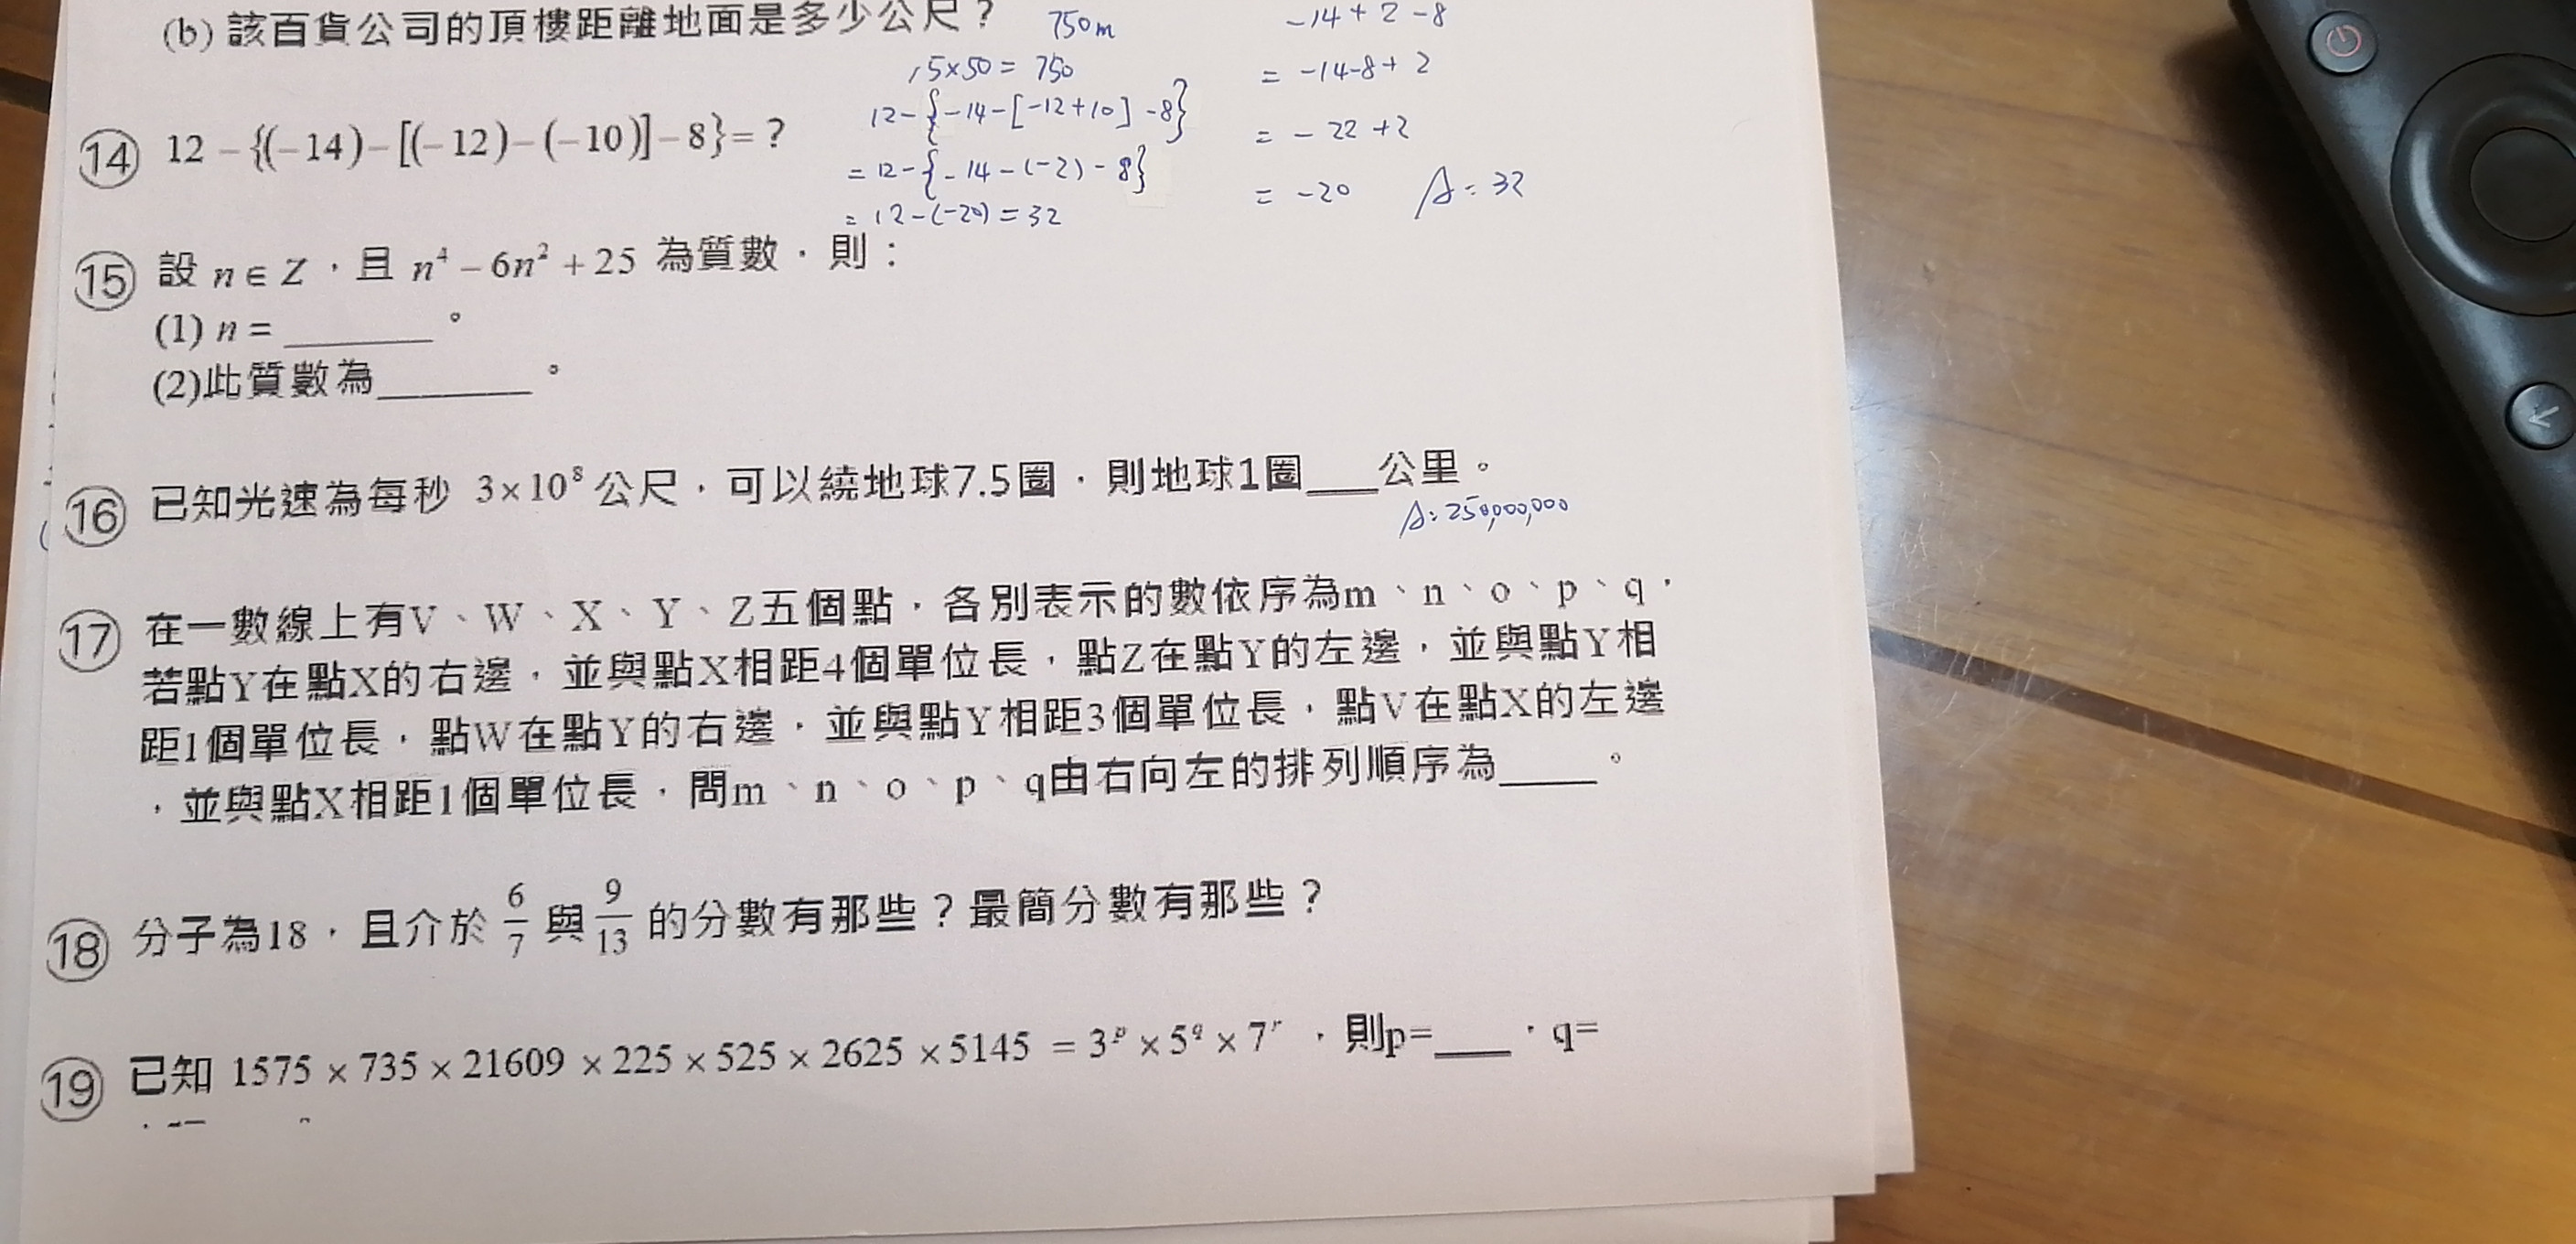 (b) 該百貨公司的頂樓距離地面是多少公尺？ 750m
15×50 = 750
⑭ 12 －{(－14)－[(－12)－(－10)]－8}=？
12-{-14-[-12+10]-8}
=12-{-14-(-2)-8}
=12-(-20)=32
-14+2-8
= -14-8+2
= -22+2
= -20 A:32
⑮ 設 n∈Z，且 n⁴－6n²＋25 為質數，則：
(1) n = ______。
(2)此質數為______。
⑯ 已知光速為每秒 3×10⁸公尺，可以繞地球7.5圈，則地球1圈___公里。
A:250,000,000
⑰ 在一數線上有V、W、X、Y、Z五個點，各別表示的數依序為m、n、o、p、q，
若點Y在點X的右邊，並與點X相距4個單位長，點Z在點Y的左邊，並與點Y相
距1個單位長，點W在點Y的右邊，並與點Y相距3個單位長，點V在點X的左邊
，並與點X相距1個單位長，問m、n、o、p、q由右向左的排列順序為____。
⑱ 分子為18，且介於 6/7 與 9/13 的分數有那些？最簡分數有那些？
⑲ 已知 1575×735×21609×225×525×2625×5145 = 3ᵖ×5^q×7ʳ，則p=___，q=